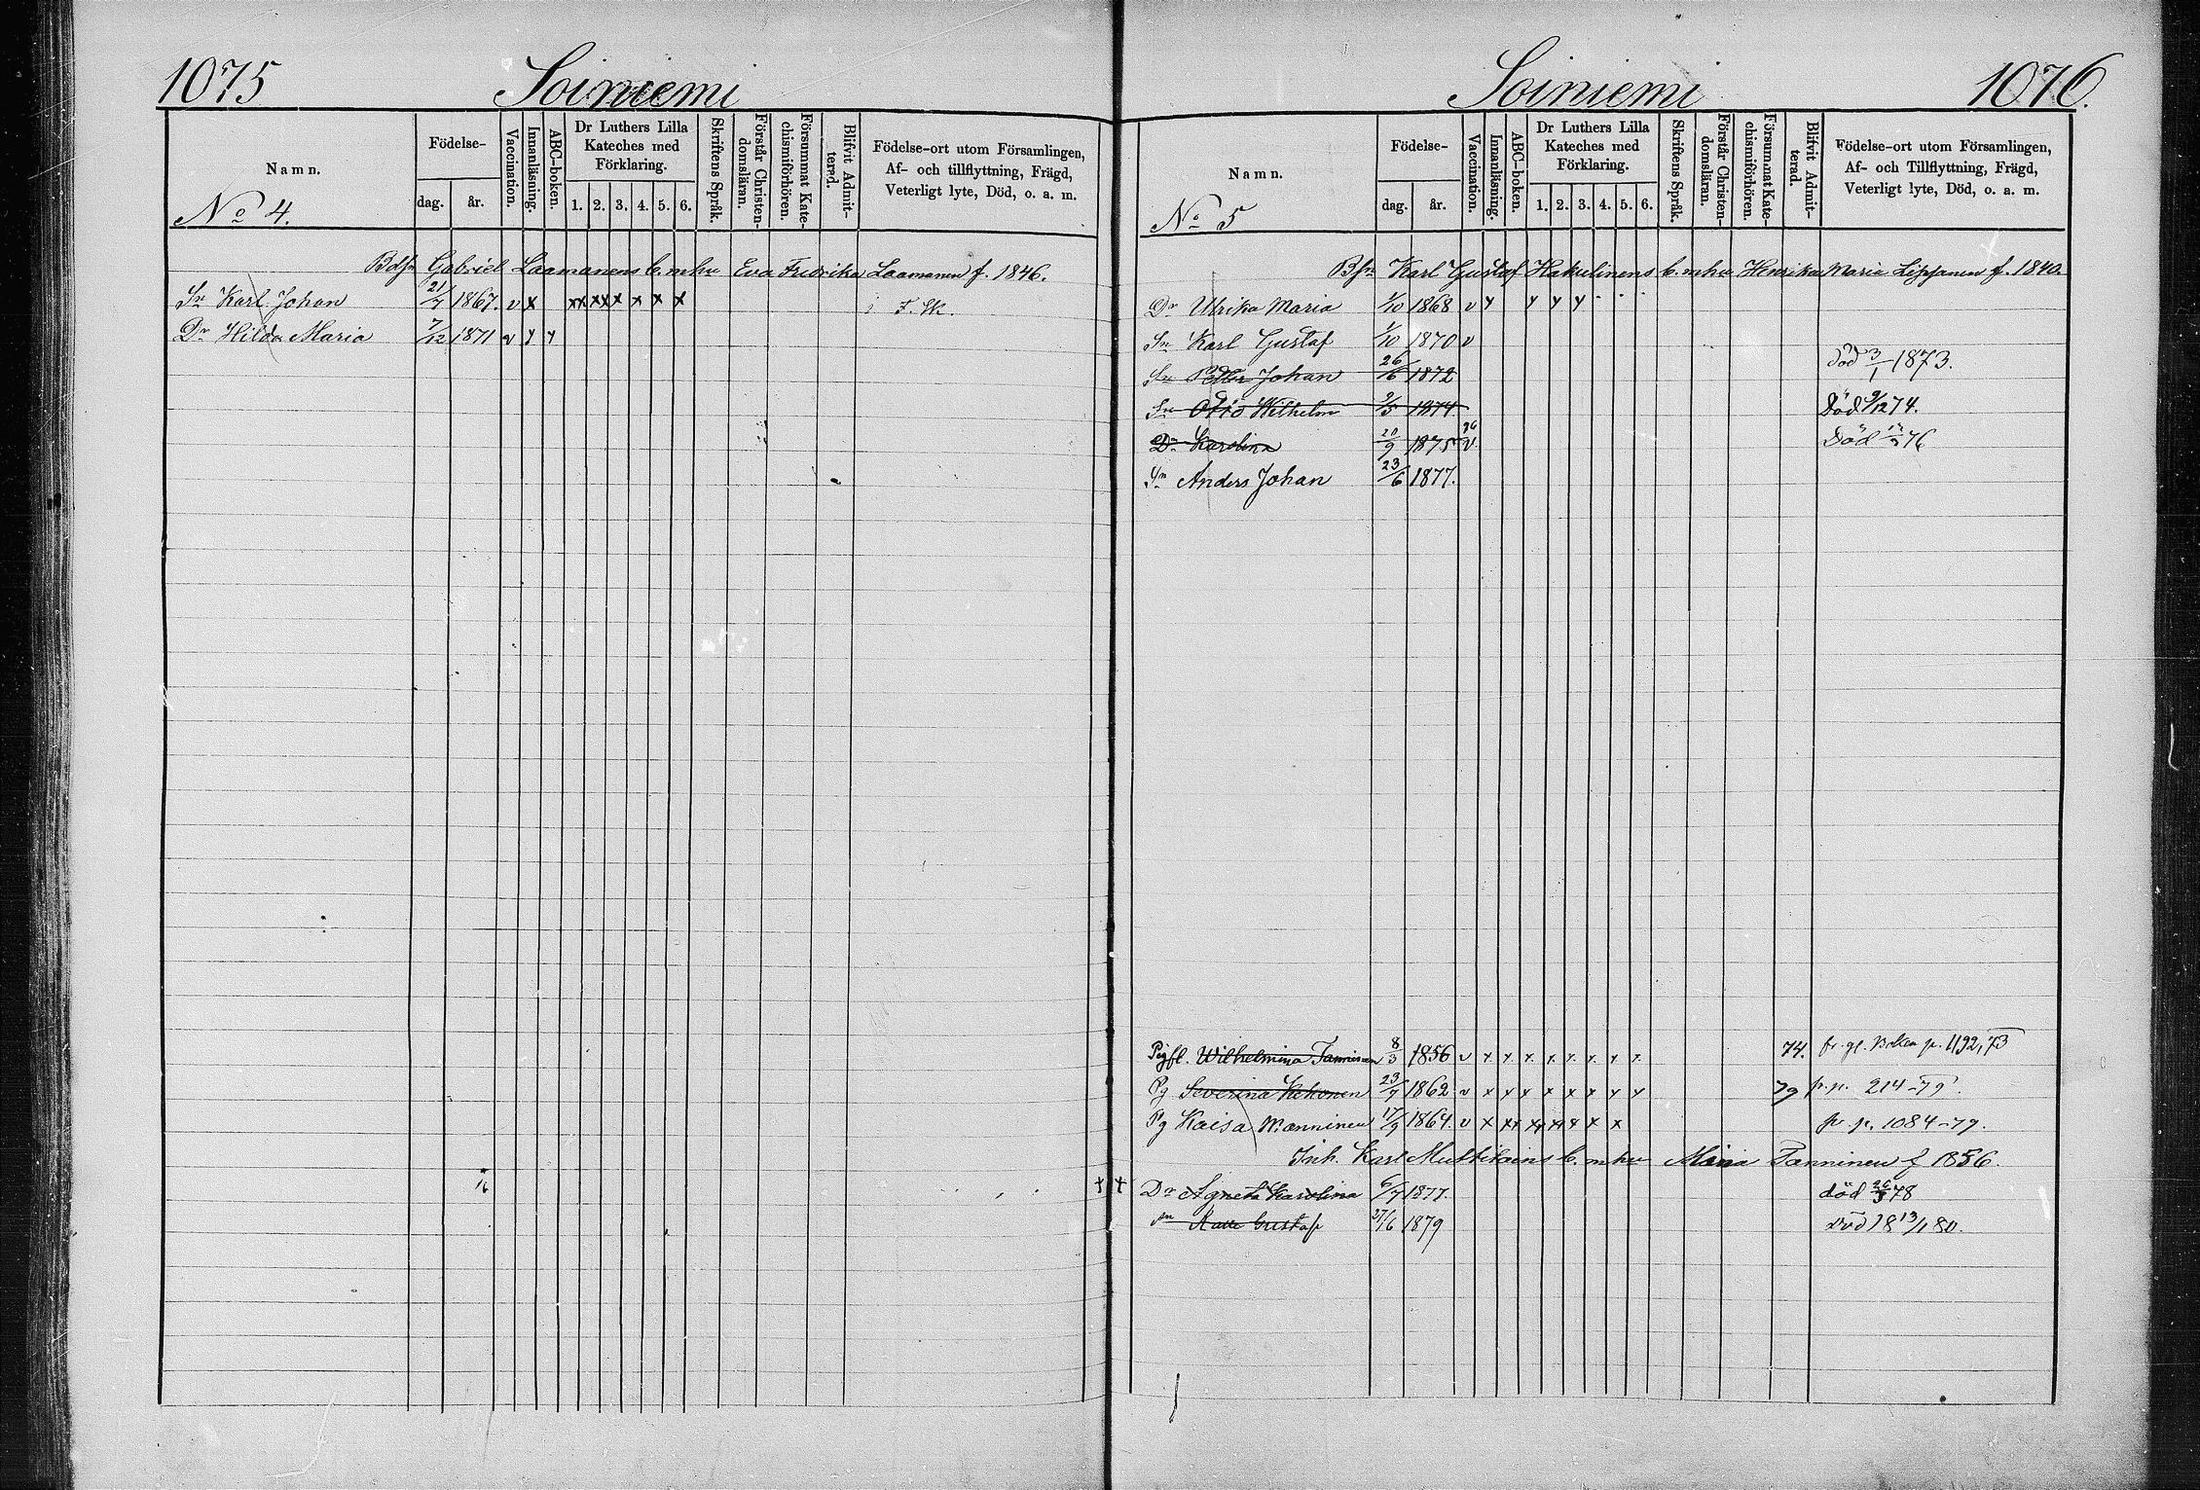 1075 Soiniemi
Namn. Födelse- Vaccination. Innanläsning. ABC-boken. Dr Luthers Lilla Kateches med Förklaring. Skriftens Språk. Förstår Christendomsläran. Försummat Katechismiförhören. Blifvit Admitterad. Födelse-ort utom Församlingen, Af- och tillflyttning, Frägd, Veterligt lyte, Död, o. a. m.
No 4. dag. år. 1. 2. 3. 4. 5. 6.
Gabriel Laamanens b. m hu Eva Fredrika Laamanen f. 1846.
Sn Karl Johan 21/7 1867. v x xx xxx x x x
Dr Hilda Maria 7/12 1871 v
1076. Soiniemi
Namn. Födelse- Vaccination. Innanläsning. ABC-boken. Dr Luthers Lilla Kateches med Förklaring. Skriftens Språk. Förstår Christendomsläran. Försummat Katechismiförhören. Blifvit Admitterad. Födelse-ort utom Församlingen, Af- och Tillflyttning, Frägd, Veterligt lyte, Död, o. a. m.
No 5 dag. år. 1. 2. 3. 4. 5. 6.
Karl Gustaf Hakulinens b. m hu Henrika Maria Lipsanen f. 1840.
Dr Ulrika Maria 1/10 1868 v
Sn Karl Gustaf 1/10 1870 v
Sn Petter Johan 26/6 1872 död 3/1 1873.
Sn Otto Wilhelm 9/5 1874 Död 9/12 74.
Dr Karolina 1875 v Död 76
Sn Anders Johan 23/6 1877.
Wilhelmina Tanninen 8/3 1856 v x x x x x x x x 74. fr. gl. Boken p. 1192, 73
Pg Severina Kekonen 23/7 1862 v x x x x x x x x 79 fr. p. 214-79.
Pg Kaisa Manninen 17/9 1864. v x xx xx xx x x x fr. p. 1084-79.
Inh. Karl b. m hu Maria Tanninen f 1856.
Dr Agneta Karolina 6/7 1877. död 78
Sn Gustaf 27/6 1879 Död 18 13/1 80.